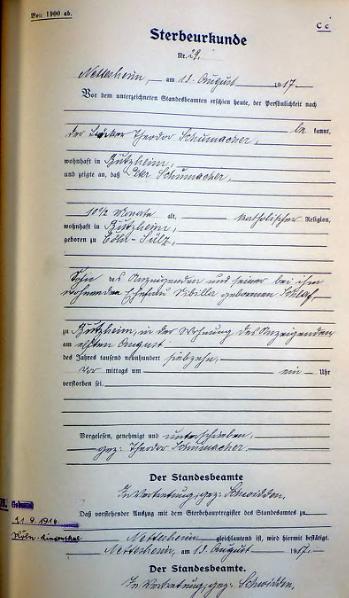 Von 1900 ab.
C c
Sterbeurkunde
Nr. 29.
Nettesheim, am 13. August 1917.
Vor dem unterzeichneten Standesbeamten erschien heute, der Persönlichkeit nach
be kannt,
der Theodor Schumacher,
wohnhaft in Butzheim,
und zeigte an, daß Schumacher,
10½ Monate alt, katholischer Religion,
wohnhaft in Butzheim,
geboren zu Cöln-Sülz,
Sohn des Anzeigenden und seiner bei ihm
wohnenden Ehefrau Sibilla geborenen
zu Butzheim, in der Wohnung des Anzeigenden
am elften August
des Jahres tausend neunhundert siebzehn,
Vor mittags um ein Uhr
verstorben sei.
Vorgelesen, genehmigt und unterschrieben,
gez: Theodor Schumacher.
Der Standesbeamte
In Vertretung, gez: Schmidden.
Daß vorstehender Auszug mit dem Sterbehauptregister des Standesamtes zu
Nettesheim gleichlautend ist, wird hiermit bestätigt.
Nettesheim, am 13. August 1917.
Der Standesbeamte.
In Vertretung, gez: Schmidden.
Geburt
Köln-Lindenthal